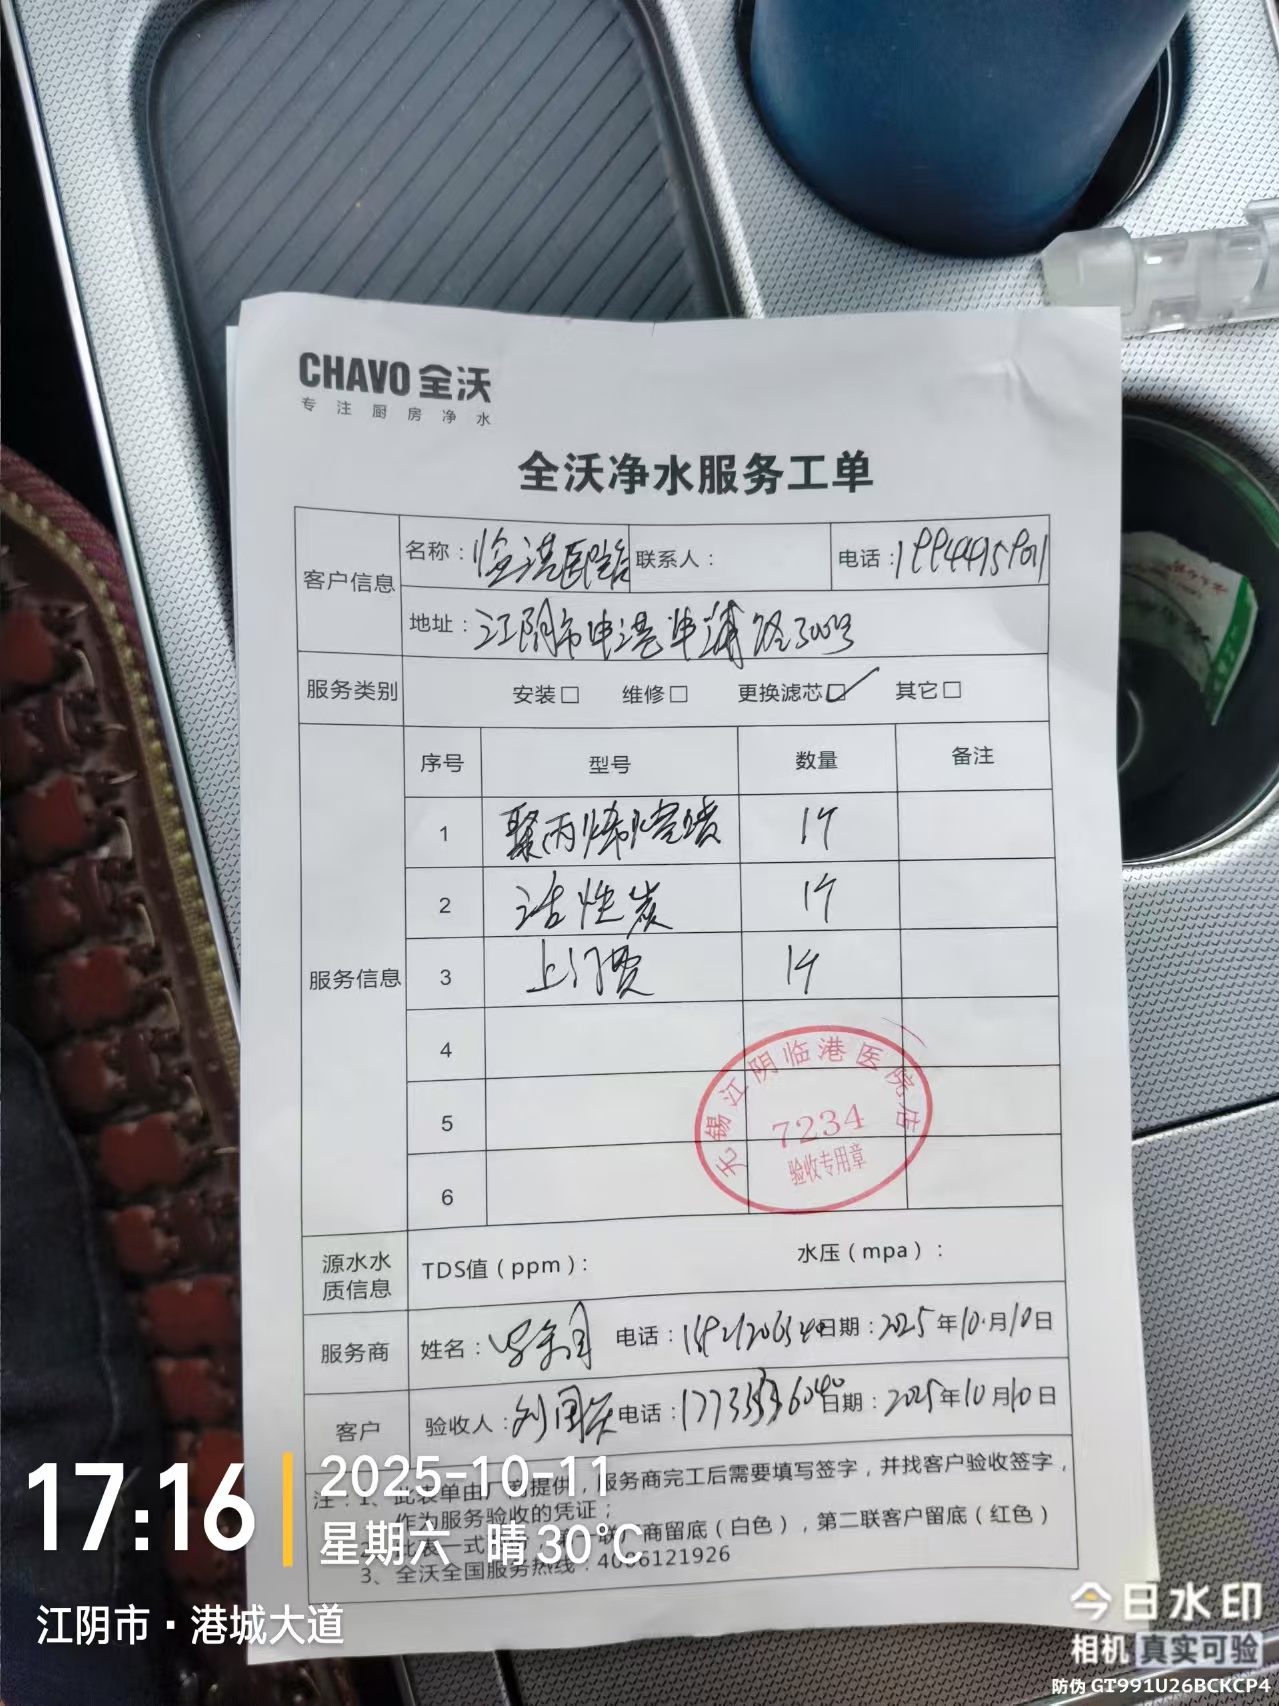 CHAVO 全沃
专注厨房净水
全沃净水服务工单
客户信息
名称：临港医院店 联系人： 电话：19944159011
地址：江阴市申港申浦路300号
服务类别 安装□ 维修□ 更换滤芯☑ 其它□
服务信息
序号 型号 数量 备注
1 聚丙烯 1个
2 活性炭 1个
3 上门费 1个
4
5
6
无锡江阴临港医院店
7234
验收专用章
源水水质信息 TDS值（ppm）： 水压（mpa）：
服务商 姓名： 电话： 日期：2025年10月10日
客户 验收人：刘 电话： 日期：2025年10月10日
注：1、此表单由厂商提供，服务商完工后需要填写签字，并找客户验收签字，
作为服务验收的凭证；
此表一式 联 商留底（白色），第二联客户留底（红色）
3、全沃全国服务热线：4006121926
17:16
2025-10-11
星期六 晴 30℃
江阴市·港城大道
今日水印
相机 真实可验
防伪 GT991U26BCKCP4